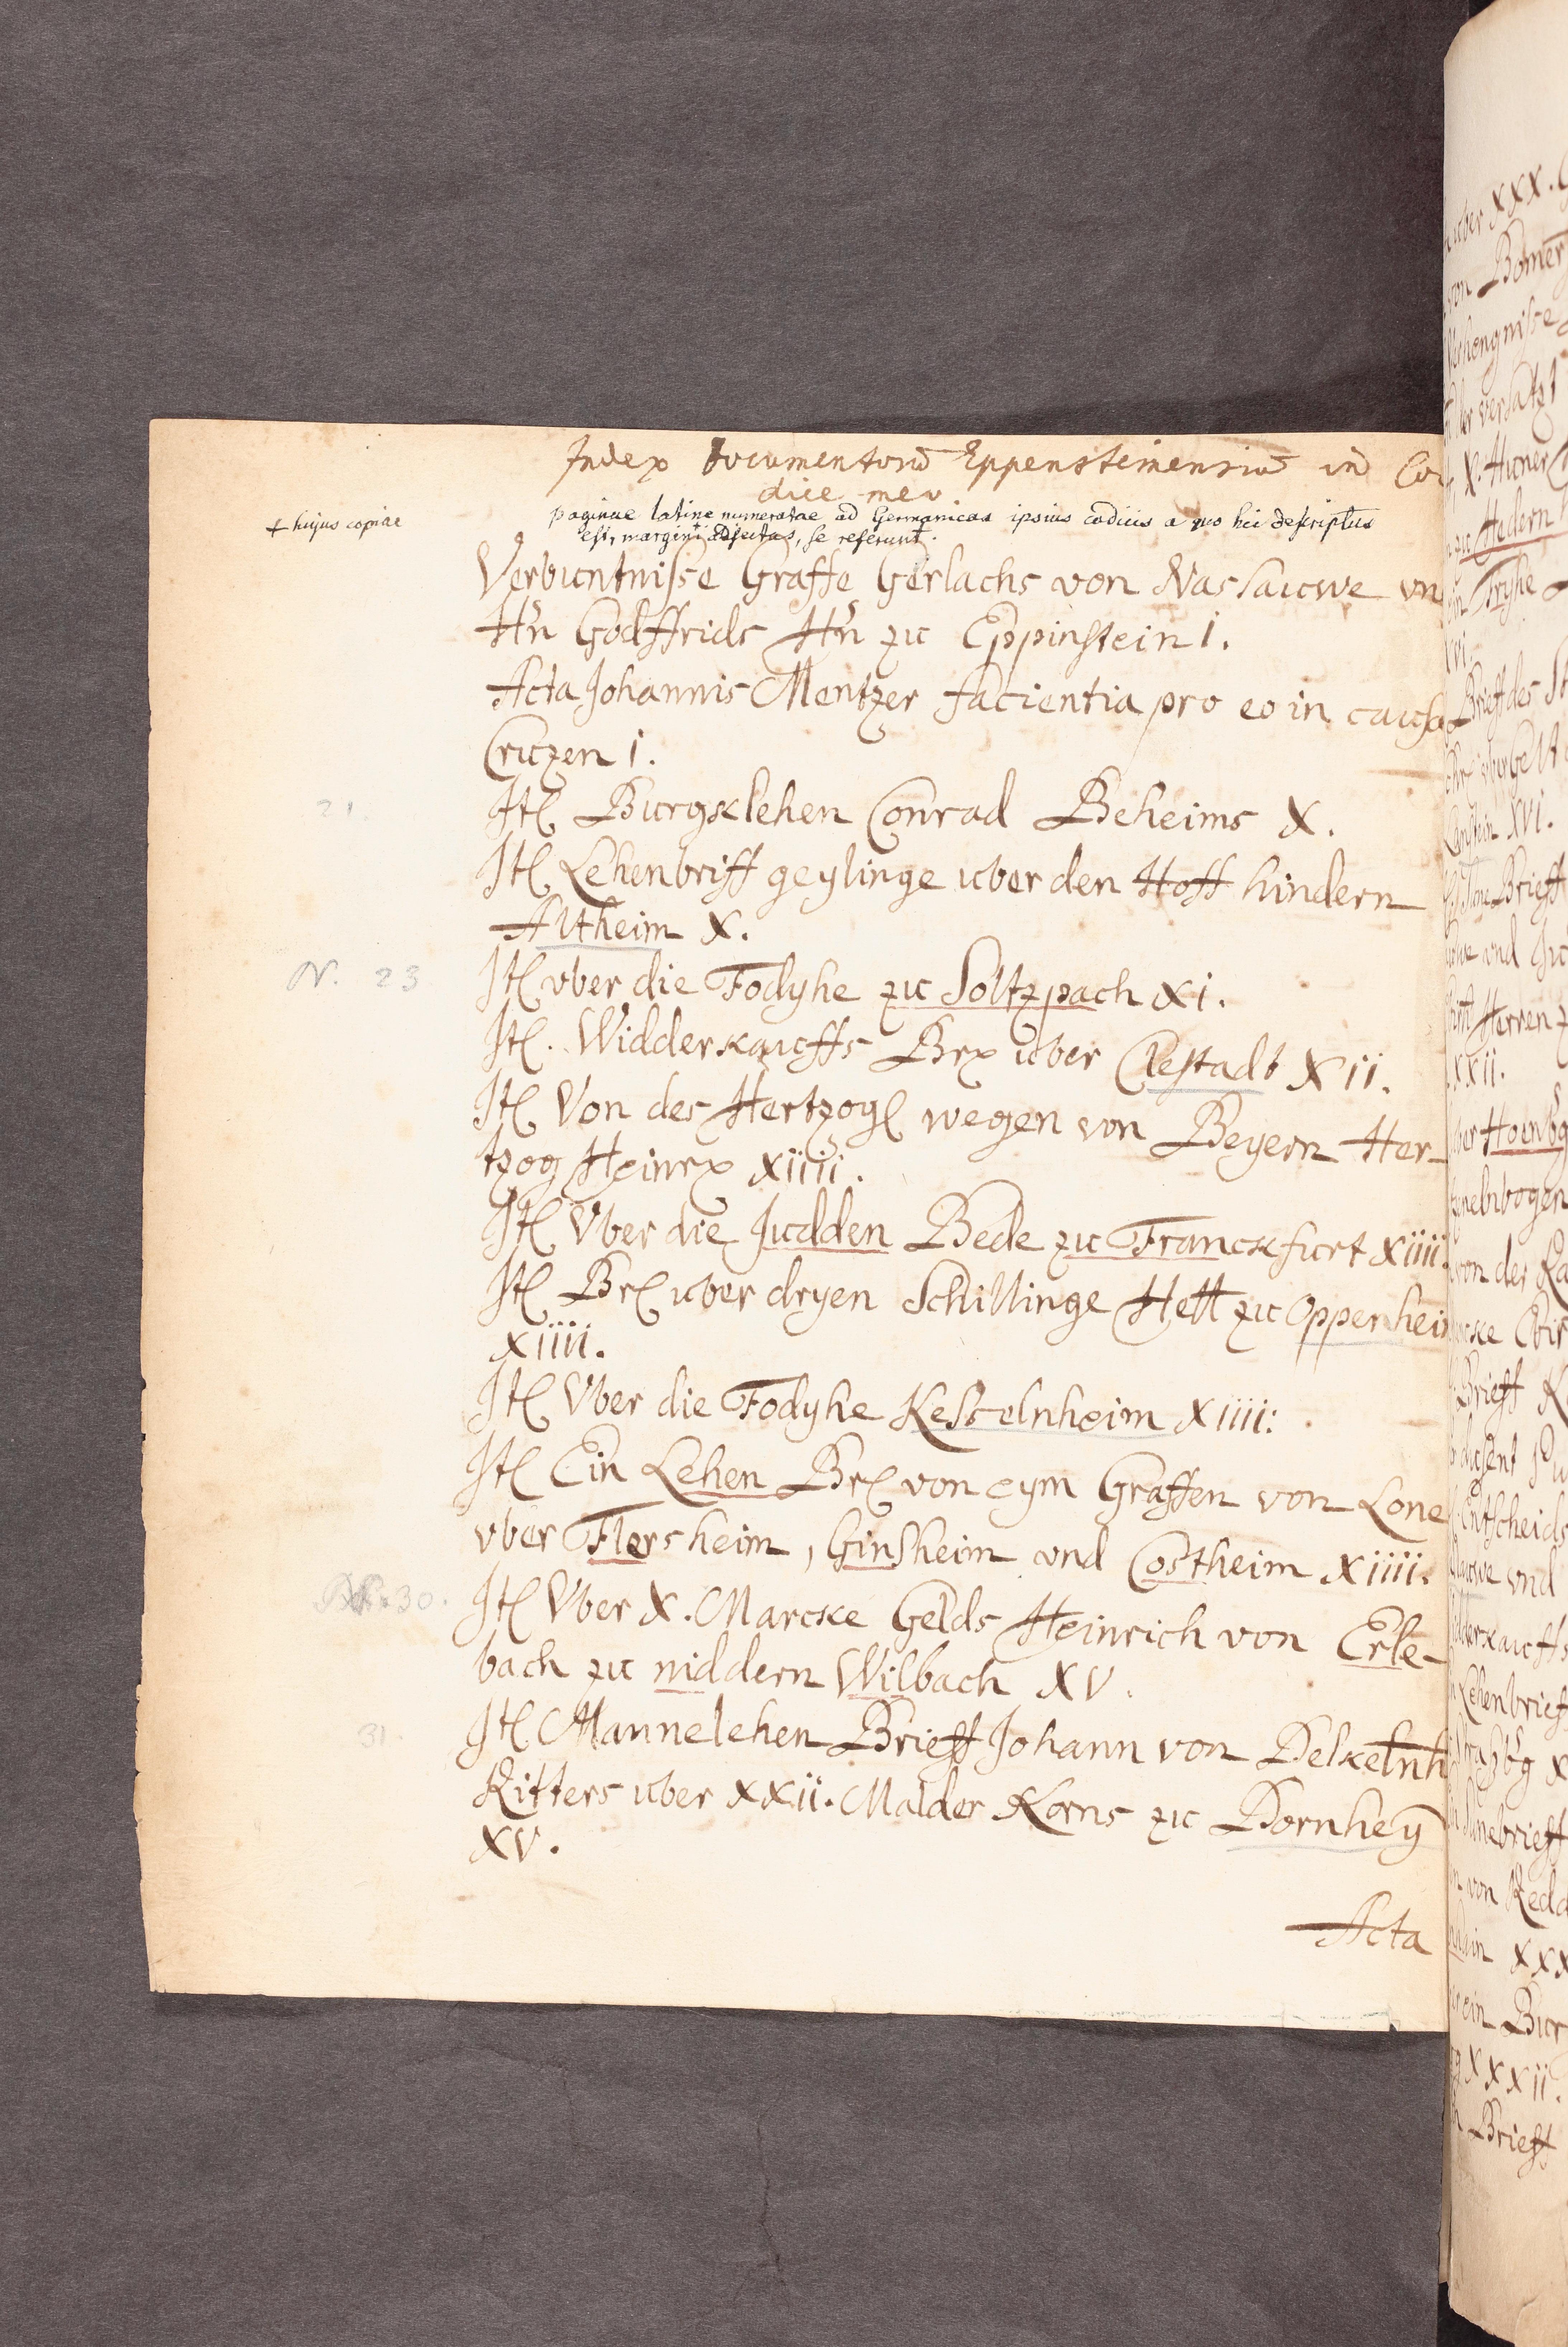 Index Documentorũ Eppensteinensiũ in Co-
dice meo.
paginae latine numeratae ad Germanicas ipsius codicis a quo hic descriptus
est, margini † adjectas, se referunt.
† hujus copiae
Verbuntnisse Graffe Gerlachs von Nassauwe vn
Hrn Godffrids Hrn zu Eppinstein I.
Acta Johannis Mentzer facientia pro eo in causa
Cruzen I.
21. Itē Burgklehen Conrad Beheims X.
Itē Lehenbriff geylinge uber den Hoff hindern
Altheim X.
N. 23 Itē vber die Fodyhe zu Soltzpach XI.
Itē. Widderkauffs Brx uber Clestadt XII.
Itē Von des Hertzogē wegen von Beyern Her-
tzog Heinrx XIIII.
Itē Vber die Judden Bede zu Franckfurt XIIII.
Itē Brē uber dryen Schillinge Hell zu Oppenheim
XIIII.
Itē Vber die Fodyhe Kestelnheim XIIII:
Itē Ein Lehen Brē von eym Graffen von Lone
vber Flersheim, Ginsheim vnd Costheim XIIII.
30. Itē Vber X. Marcke Gelds Heinrich von Erle-
bach zu niddern Wilbach XV.
31. Itē Mannelehen Brieff Johann von Delkelnh
Ritters uber XXII. Malder Korns zu Dornheȳ
XV.
Acta
uber XXX.
von Bomer
der versatzt
X. Huner
zu Hedern
Fryhe
XVI.
Brieff des
XVI.
Brieff
vnd
Herren
XXII.
von der
Brieff
Entscheids
vnd
Lehenbrieff
von Redd
XXX
ein Bur
XXXII.
Brieff